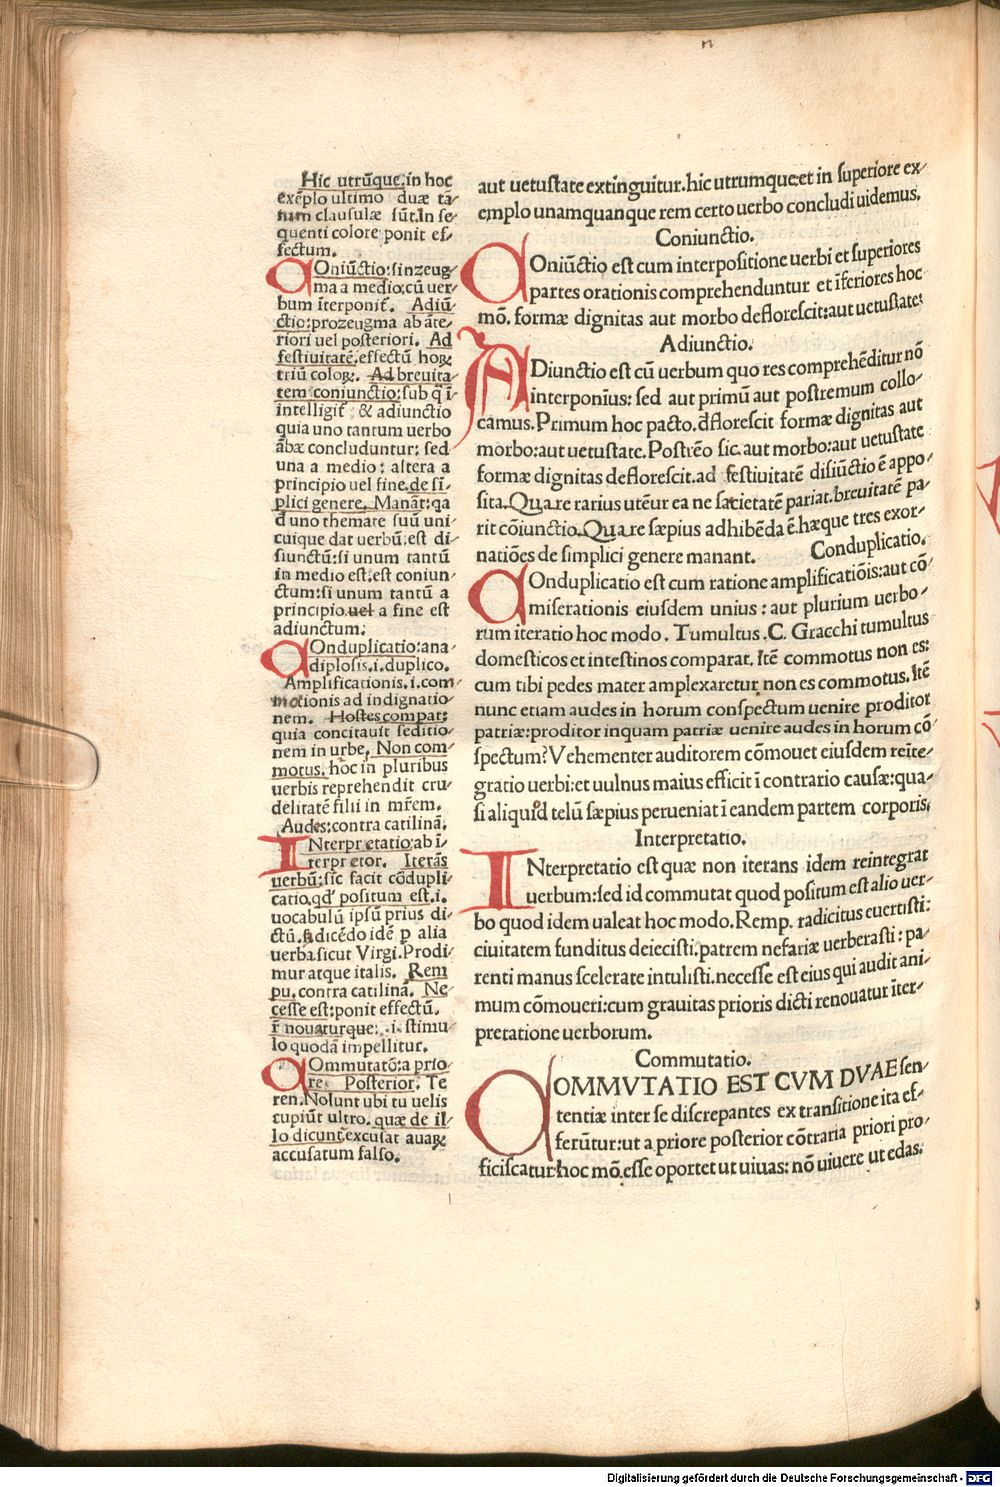 Hic utrūque.in hoc
exēplo ultimo duæ tā-
tum clausulæ sūt.In se-
quenti colore ponit ef-
fectum.
COniūctio:sinzeug-
ma a medio:cū uer-
bum īterponit̄. Adiū-
ctio:prozeugma ab āte-
riori uel posteriori. Ad
festiuitatē.effectū hoꝝ
triū coloꝝ. Ad breuita-
tem coniunctio:sub q̄ ī-
intelligit̄ & adiunctio
quia uno tantum uerbo
ābæ concluduntur: sed
una a medio: altera a
principio uel fine.de sī-
plici genere. Manāt:qa
d uno themate suū uni-
cuique dat uerbū:est di-
siunctū:si unum tantū
in medio est:est coniun-
ctum:si unum tantū a
principio.uel a fine est
adiunctum:
COnduplicatio:ana-
diplosis.i.duplico.
Amplificationis.i.com-
motionis ad indignatio-
nem. Hostes compar:
quia concitauit seditio-
nem in urbe. Non com-
motus.hoc in pluribus
uerbis reprehendit cru-
delitatē filii in mr̄em.
Audes:contra catilinā.
INterpretatio:ab ī-
terpretor. Iterās
uerbū:sic facit cōdupli-
catio.qd̄ positum est.i.
uocabulū ipsū prius di-
ctū.sʒ dicēdo idē p alia
uerba sicut Virgi.Prodi-
mur atque italis. Rem
pu.contra catilinā. Ne-
cesse est:ponit effectū.
r̄nouaturque:.i.stimu-
lo quodā impellitur.
COmmutatō:a prio-
re. Posterior. Te-
ren.Nolunt ubi tu uelis
cupiūt ultro.quæ de il-
lo dicunt.excusat auaꝝ
accusatum falso.
aut uetustate extinguitur.hic utrumque:et in superiore ex-
emplo unamquanque rem certo uerbo concludi uidemus.
Coniunctio.
COniūctio est cum interpositione uerbi et superiores
partes orationis comprehenduntur et īferiores hoc
mō. formæ dignitas aut morbo deflorescit:aut uetustate:
Adiunctio.
ADiunctio est cū uerbum quo res comprehēditur nō
interponius: sed aut primū aut postremum collo-
camus.Primum hoc pacto.đflorescit formæ dignitas aut
morbo:aut uetustate.Postrēo sic.aut morbo:aut uetustate
formæ dignitas deflorescit.ad festiuitatē disiūctio ē appo-
sita.Quare rarius utēur ea ne sacietatē pariat.breuitatē pa-
rit cōiunctio.Quare sæpius adhibēda ē.hæque tres exor-
natiōes de simplici genere manant. Conduplicatio.
COnduplicatio est cum ratione amplificatiōis:aut cō-
miserationis eiusdem unius: aut plurium uerbo-
rum iteratio hoc modo. Tumultus.C. Gracchi tumultus
domesticos et intestinos comparat. Itē commotus non es:
cum tibi pedes mater amplexaretur non es commotus. Itē
nunc etiam audes in horum conspectum uenire proditor
patriæ:proditor inquam patriæ uenire audes in horum cō-
spectum?Vehementer auditorem cōmouet eiusdem reīte-
gratio uerbi:et uulnus maius efficit ī contrario causæ:qua-
si aliquod telū sæpius perueniat ī eandem partem corporis.
Interpretatio.
INterpretatio est quæ non iterans idem reintegrat
uerbum:sed id commutat quod positum est alio uer-
bo quod idem ualeat hoc modo.Remp. radicitus euertisti:
ciuitatem funditus deiecisti.patrem nefariæ uerberasti: pa-
renti manus scelerate intulisti.necesse est eius qui audit ani-
mum cōmoueri:cum grauitas prioris dicti renouatur īter-
pretatione uerborum.
Commutatio.
COMMVTATIO EST CVM DVAE sen-
tentiæ inter se discrepantes ex transitione ita ef-
ferūtur:ut a priore posterior cōtraria priori pro-
ficiscatur.hoc mō.esse oportet ut uiuas: nō uiuere ut edas.
Digitalisierung gefördert durch die Deutsche Forschungsgemeinschaft - DFG